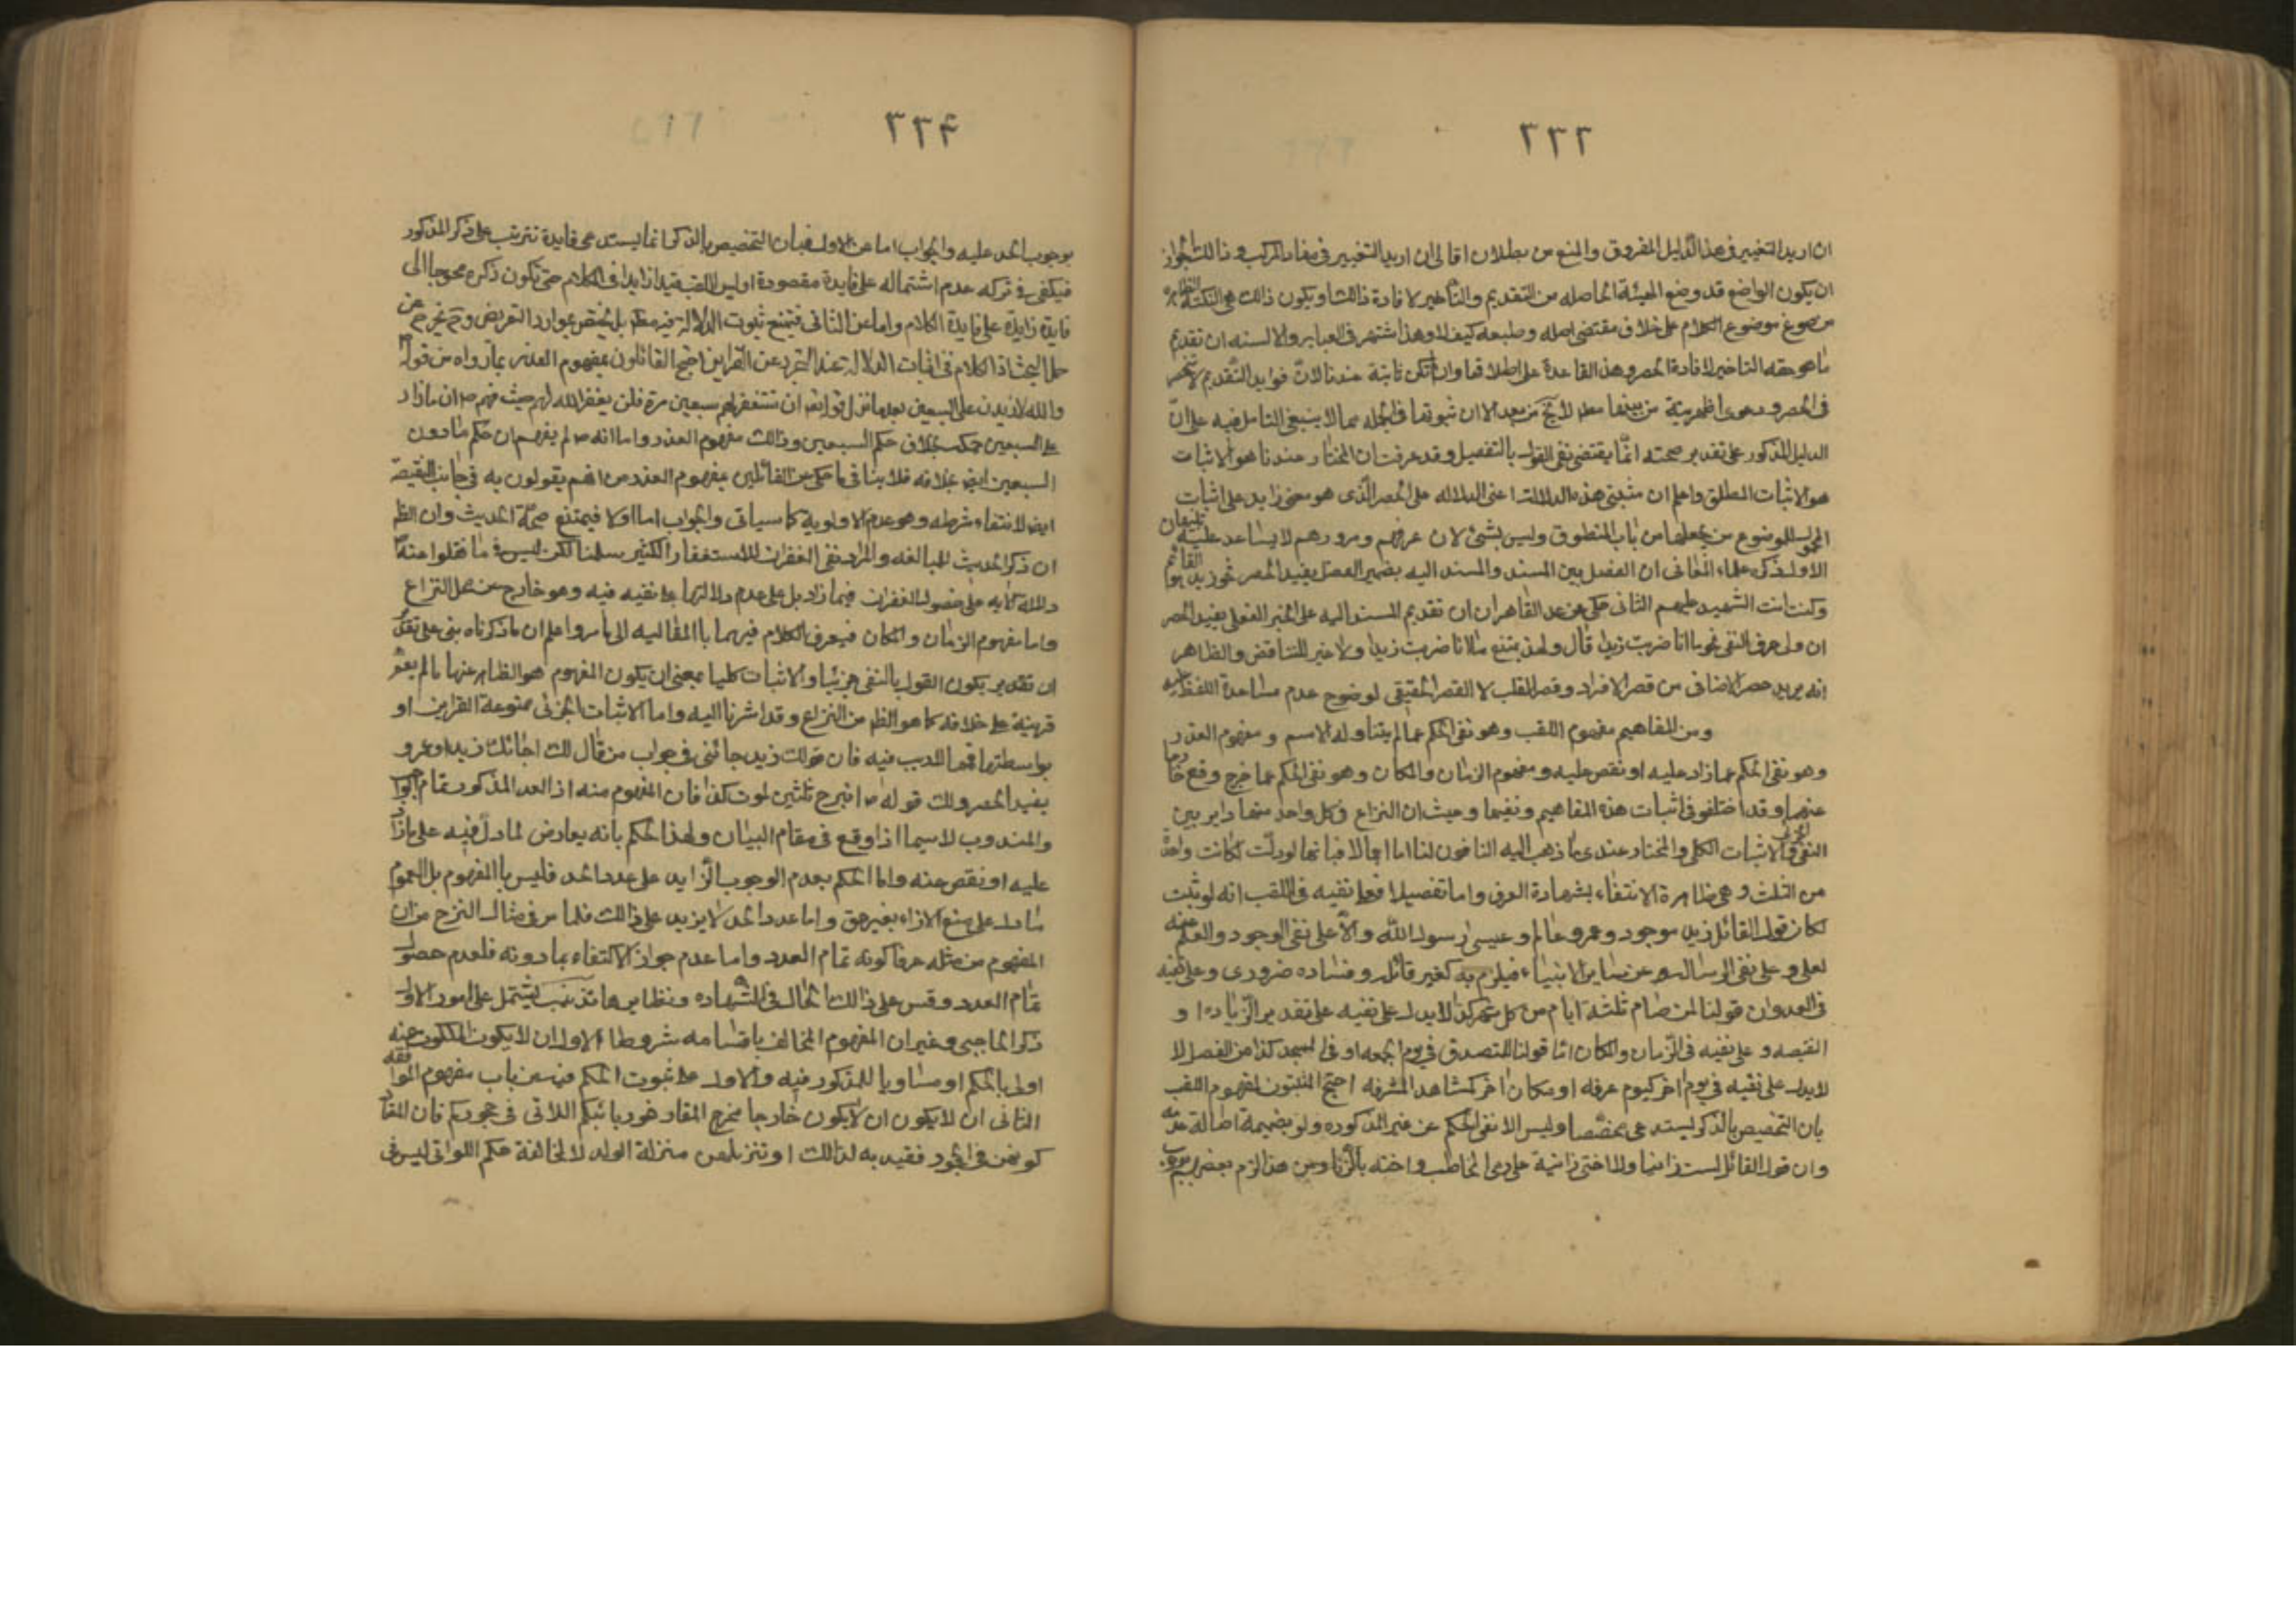 ٣٣٣
ان اريد التغيير فى هذا الدليل المفروق والمنع من بطلان التالى ان اريد التغيير فى مفاد المركب و ذالك لجواز
ان يكون الواضع قد وضع الهيئة الحاصله من التقديم والتأخير لافادة ذالك او يكون ذالك هى النكتة الظاهره
من صوغ موضوع الكلام على خلاف مقتضى اصله و طبعه كيف لا وهذا اشتهر فى العباير والالسنه ان تقديم
ما هو حقه التاخير لافادة الحصر و هذا القاعدة على اطلاقها وان لم تكن ثابتة عندنا لانّ فوايد التقديم لا تنحصر
فى الحصر و دعوى اظهريته من بينها مط لا يخ من بعد الا ان ثبوتها فى الجمله مما لا ينبغى التامل فيه على انّ
الدليل المذكور على تقدير صحته انّما يقتضى نفى القول بالتفصيل و قد عرفت ان المختار عندنا هو الاثبات
هو الاثبات المطلق واعلم ان مثبتى هذه الدلالت اعنى الدلاله على الحصر الّذى هو معنى زايد على اثبات
المحمول للموضوع من يجعلها من باب المنطوق وليس بشئ لان عرفهم و مرورهم لا يساعد عليه تنبيهان
الاول ذكر علماء المعانى ان الفصل بين المسند والمسند اليه بضمير الفصل يفيد الحصر نحو زيد هو القائم
وكنت انت الشهيد عليهم الثانى حكى عن عبد القاهر ان ان تقديم المسند اليه على الخبر الفعلى يفيد الحصر
ان ولى حرف النفى نحو ما انا ضربت زيدا قال و لهذ يمتنع ما انا ضربت زيدا ولا غير للتناقض والظاهر
انه يريد حصر الاضافى من قصر الافراد و قصر القلب لا القصر الحقيقى لوضوح عدم مساعدة اللفظ عليه
ومن المفاهيم مفهوم اللقب وهو نفى الحكم عما لم يتناوله الاسم و مفهوم العدد
وهو نفى الحكم عما زاد عليه او نقص عليه و مفهوم الزمان والمكان وهو نفى الحكم عما خرج وقع خارجا
عنهما و قد اختلفو فى اثبات هذه المفاهيم و نفيها و حيث ان النزاع فى كل واحد منها داير بين
النفى الجزئى والاثبات الكلى والمختار عندى ما ذهب اليه النافون لنا اما اجمالا فبانها لو دلّت لكانت واحدة
من الثلث و هى ظاهرة الانتفاء بشهادة العرف واما تفصيلا فعلى نفيه فى اللقب انه لو ثبت
لكان قول القائل زيد موجود و عمرو عالم و عيسى رسول اللّه دالّا على نفى الوجود والعلم عنه
تعلى و على نفى الرسالة عن ساير الانبياء فيلزم به كفير قائله و فساده ضرورى و على نفيه
فى العدد ان قولنا لمن صام ثلثة ايام من كل شهر كذا لا يدل على نفيه على تقدير الزّيادة او
النقيصه و على نفيه فى الزّمان والمكان انا قولنا للتصدق فى يوم الجمعه او فى المسجد كذا من الفصل لا
لا يدل على نفيه فى يوم اخر كيوم عرفه او مكان اخر كمشاهد المشرفه احتج المثبتون لمفهوم اللقب
بان التخصيص بالذكر ليستدعى مخصّصا و ليس الا نفى الحكم عن غير المذكوره ولو بضميمة اصالة عدمه
وان قول القائل لست زانيا ولا اختى زانية على رمى المخاطب و اخته بالزّنا و من هذا لزم بعضهم
٣٣۴
بوجوب الحد عليه والجواب اما عن الاول فبان التخصيص بالذكر انما يستدعى فايدة تترتب على ذكر المذكور
فيكفى فى تركه عدم اشتماله على فايدة مقصودة او ليس اللقب قيدا زايدا فى الكلام حتى تكون ذكره محوجا الى
فايدة زايدة على فايدة الكلام واما عن الثانى فبمنع ثبوت الدلالة فيه مط بل يختص بموارد التعريض و ح تخرج عن
محل البحث اذ الكلام فى اثبات الدلالة عند التجرد عن القراين احتج القائلون بمفهوم العدد بما رواه من قوله
والله لازيدن على السبعين بعد ما نزل قوله تعالى ان تستغفر لهم سبعين مرة فلن يغفر الله لهم حيث فهم ص ان ما زاد
على السبعين حكمه بخلاف حكم السبعين و ذالك مفهوم العدد و اما انه ص لم يفهم ان حكم ما دون
السبعين ايضا بخلافه فلا ينافى ما حكى من القائلين بمفهوم العدد من انهم يقولون به فى جانب النقيصة
ايضا لانتفاء شرطه وهو عدم الاولوية كما سياتى والجواب اما اولا فبمنع صحّة الحديث وان الظ
ان ذكر الحديث للمبالغه والمراد نفى الغفران للاستغفار الكثير سلمنا لكن ليس فى ما نقلوا عنه
دلالة الايه على حصول الغفران فيما زاد بل على عدم دلالتها على نفيه فيه وهو خارج عن محل النزاع
واما مفهوم الزمان والمكان فيعرف الكلام فيهما با المقاليه الى ما مر واعلم ان ما ذكرناه بنى على تقدير
ان تقدير يكون القول بالنفى جزئيا والاثبات كليا بمعنى ان يكون المفهوم هو الظاهر عنها ما لم يقم
قرينة على خلافه كما هو الظ من النزاع و قد اشرنا اليه واما الاثبات الجزئى بمعونة القراين او
بواسطتها فمما لا ريب فيه فان قولك زيد جائنى فى جواب من قال لك اجائك زيد او عمرو
يفيد الحصر و لك قوله ص انزح ثلثين لموت كذا فان المفهوم منه اذ العدد المذكور مقام الجواب
والمندوب لاسيما اذا وقع فى مقام البيان و لهذا الحكم بانه يعارض لما دلّ فيه على ما زاد
عليه او نقص عنه و اما الحكم بعدم الوجوب الزّايد على عدد الحد فليس با المفهوم بل العموم
ما دل على منع الازاء بغير حق و اما عدد الحد لا يزيد على ذالك فلما مر فى مثال النزح من ان
المفهوم من مثله عرفا كونه تمام العدد واما عدم جواز الاكتفاء بما دونه فلعدم حصول
تمام العدد و قس على ذالك الحال فى الشهاده و نظايرها تذنيب يشتمل على امور الاول
ذكر الحاجبى و غير ان المفهوم المخالف باقسامه شروطا الاول ان لا يكون المسكوت عنه
اولى بالحكم او مساويا للمذكور فيه والاول على ثبوت الحكم فيه من باب مفهوم الموافقه
الثانى ان لا يكون ان لا يكون خارجا مخرج المقار نحو ربائبكم اللاتى فى حجوركم فان المقار
كونهن فى الحجود فقيد به لذالك او تنزيلهن منزلة الولد لا لمخالفة حكم اللواتى ليس فى